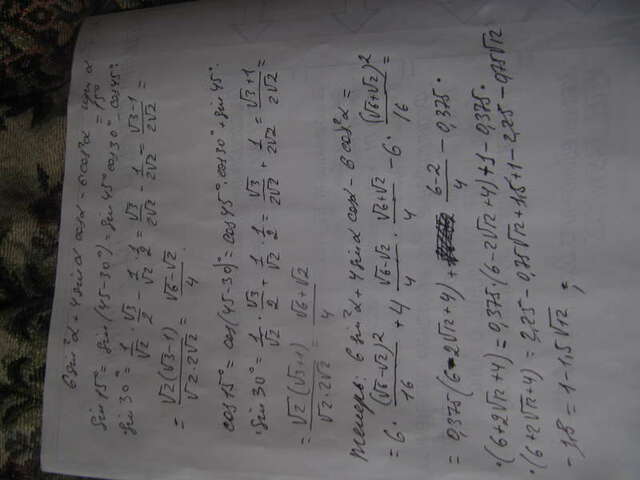 6 sin²α + 4 sinα cosα − 6 cos²α если α = 15°
sin 15° = sin(45−30°) = sin 45° cos 30° − cos 45°·
sin 30° = 1/√2 · √3/2 − 1/√2 · 1/2 = √3/2√2 − 1/2√2 = √3−1/2√2 =
= √2(√3−1)/√2·2√2 = √6−√2/4
cos 15° = cos(45−30)° = cos 45°·cos 30° + sin 45°·
sin 30° = 1/√2 · √3/2 + 1/√2 · 1/2 = √3/2√2 + 1/2√2 = √3+1/2√2
= √2(√3+1)/√2·2√2 = √6+√2/4
Теперь: 6 sin²α + 4 sinα cosα − 6 cos²α =
= 6 · (√6−√2)²/16 + 4 √6−√2/4 · √6+√2/4 − 6 · (√6+√2)²/16 =
= 0,375(6−2√12+4) + 6−2/4 − 0,375·
·(6+2√12+4) = 0,375·(6−2√12+4)+1−0,375·
·(6+2√12+4) = 2,25−0,75√12+1,5+1−2,25−0,75√12
−1,5 = 1−1,5√12 ;